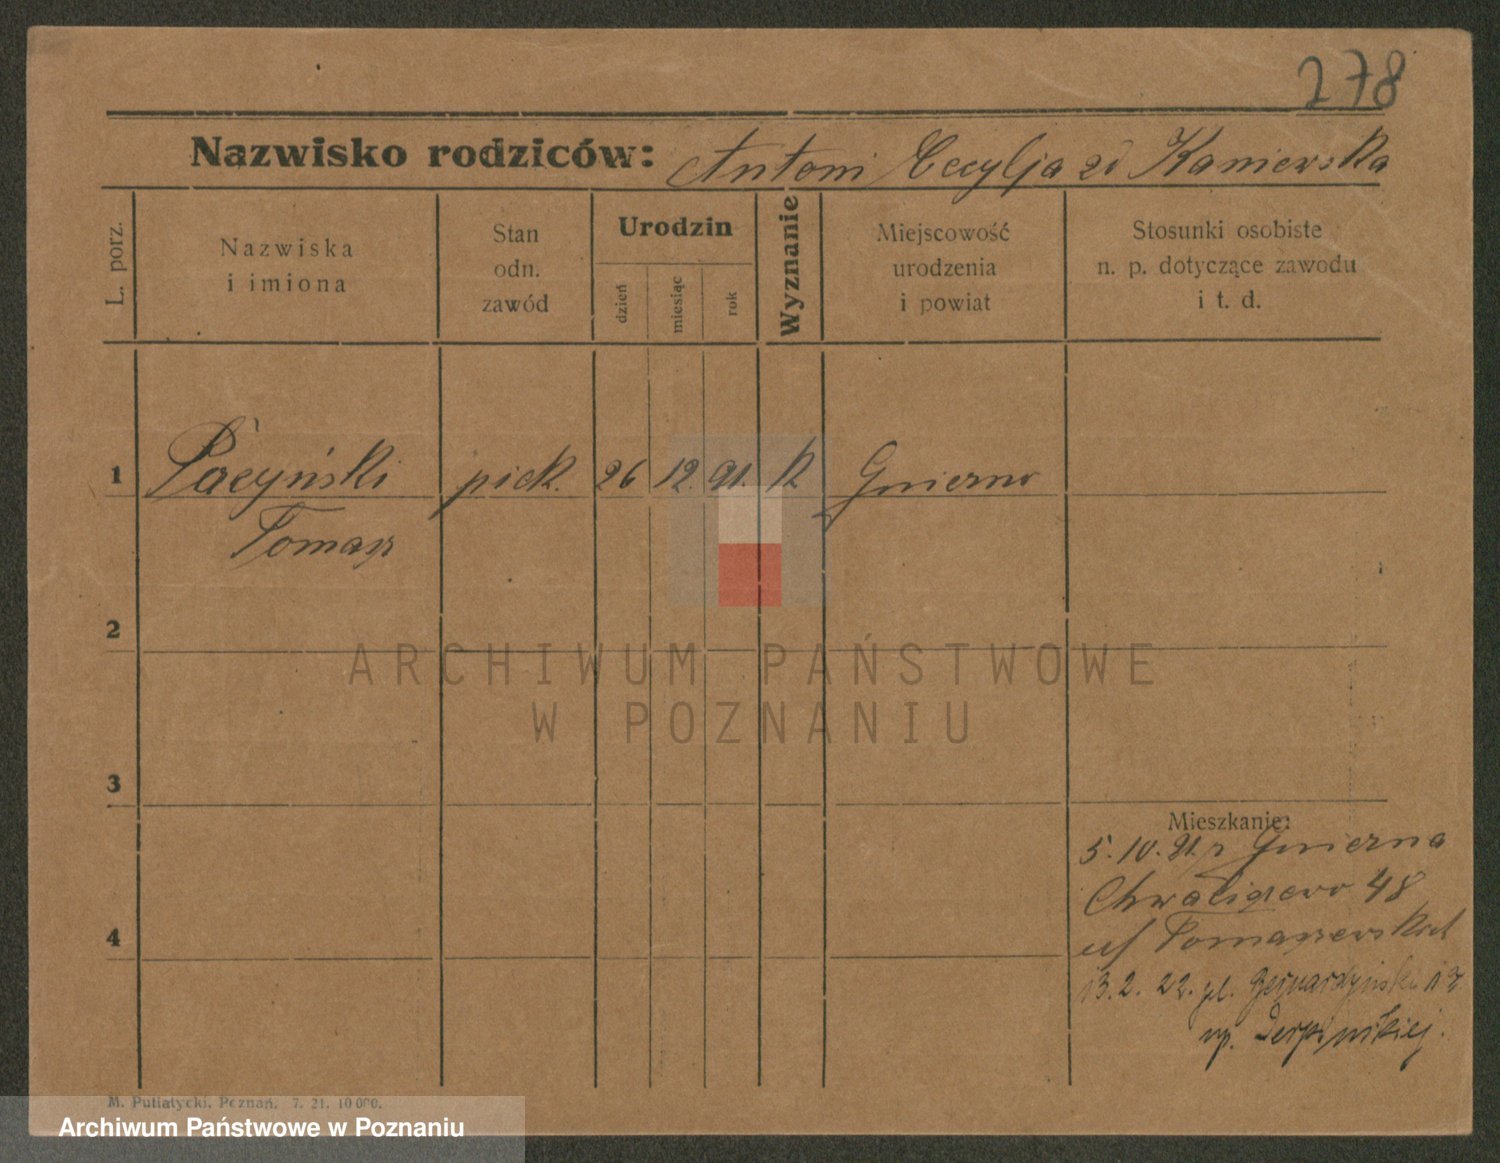 278
Nazwisko rodziców: Antoni Cecylja zd Kaniewska
L. porz.
Nazwiska
i imiona
Stan
odn.
zawód
Urodzin
dzień
miesiąc
rok
Wyznanie
Miejscowość
urodzenia
i powiat
Stosunki osobiste
n. p. dotyczące zawodu
i t. d.
1 Paczyński piek. 26 12. 91. k
Tomasz
2
ARCHIWUM PAŃSTWOWE
W POZNANIU
3
Mieszkanie:
5. 10. 21. z
48
4
13. 2. 22. pl. Bernardyński
M. Putiatycki, Poznań, 7. 21. 10 000.
Archiwum Państwowe w Poznaniu